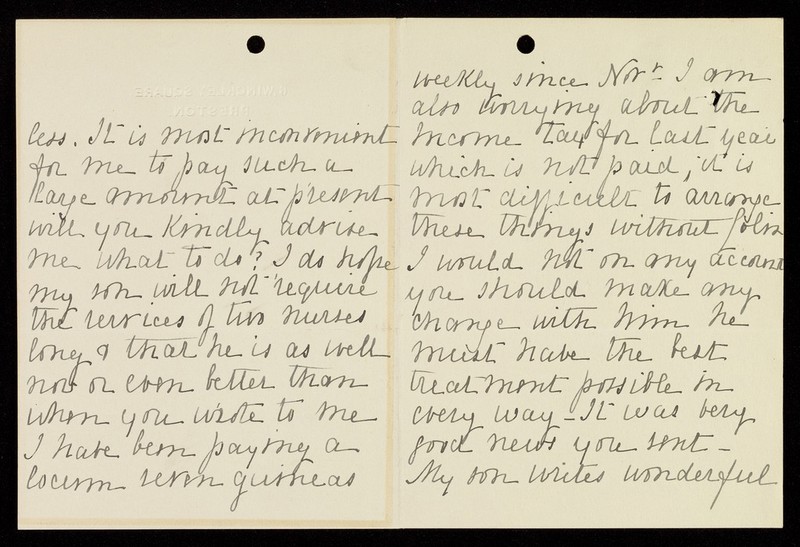 less. It is most inconvenient
for me to pay such a
large amount at present
will you Kindly advise
me what to do? I do hope
my son will not require
the services of two nurses
long & that he is as well
now or even better than
when you wrote to me
I have been paying a
locum seven guineas
weekly since Novr I am
also worrying about the
Income Tax for last year
which is not paid, it is
most difficult to arrange
these things without Colin
I would not on my account
you should make any
change with him he
must have the best
treatment possible in
every way - It was very
good news you sent -
My son writes wonderful